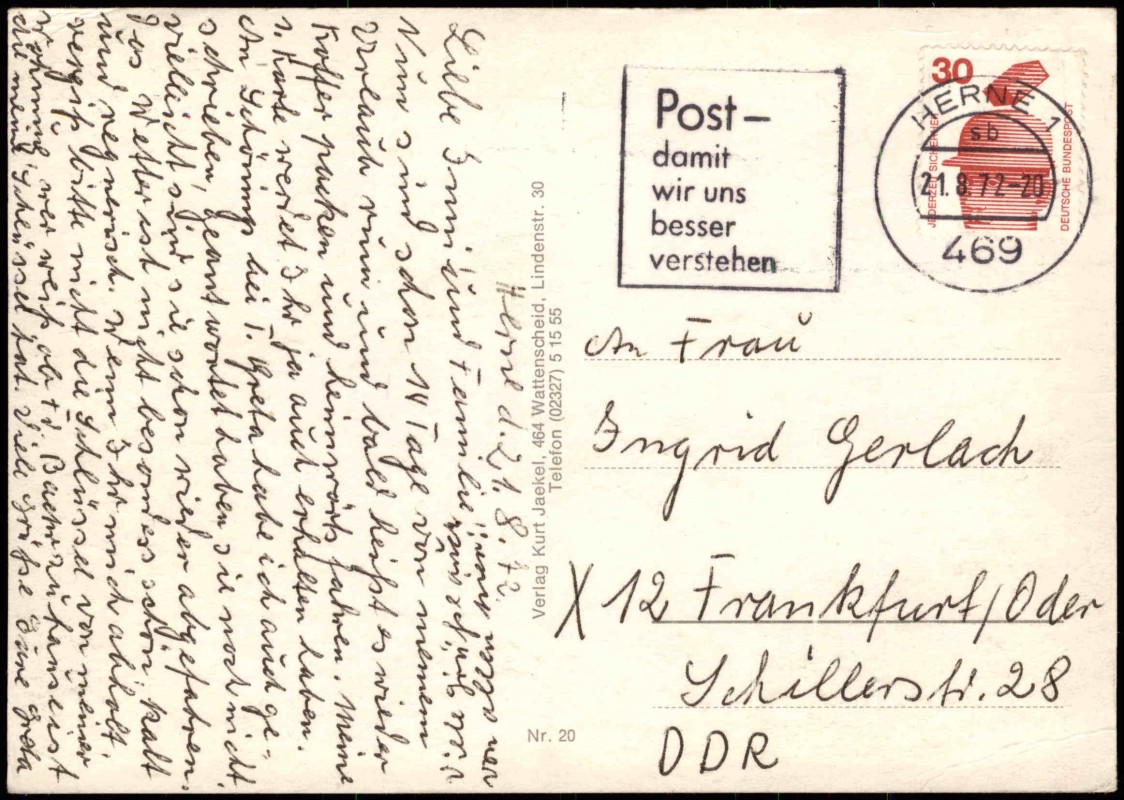 Post –
damit
wir uns
besser
verstehen
30
JEDERZEIT SICHERHEIT
DEUTSCHE BUNDESPOST
HERNE 1
sb
21.8.72-20
469
An Frau
Ingrid Gerlach
X 12 Frankfurt/Oder
Schillerstr. 28
DDR
Verlag Kurt Jaekel, 464 Wattenscheid, Lindenstr. 30
Telefon (02327) 5 15 55
Nr. 20
Herne d. 21. 8. 72.
Liebe Inni und Familie!
Nun sind schon 14 Tage von meinem
Urlaub rum und bald heißt es wieder
Koffer packen und heimwärts fahren. Meine
1. Karte werdet Ihr ja auch erhalten haben.
An Schönings bei T. Greta habe ich auch ge-
schrieben, geantwortet haben sie noch nicht,
vielleicht sind sie schon wieder abgefahren.
Das Wetter ist nicht besonders schön, kalt
und regnerisch. Wenn Ihr mich abholt,
vergißt bitte nicht die Schlüssel von meiner
Wohnung, wer weiß ob Fr. zu Hause ist
die meine Schlüssel hat. Viele Grüße Eure Greta